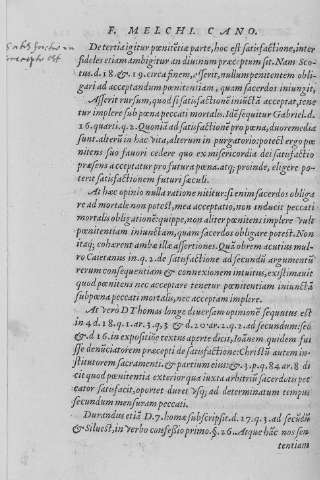 F. MELCHI. CANO.
Satisfactio in
præcepto est
De tertia igitur pœnitẽtiæ parte, hoc est satisfactiõe, inter
fideles etiam ambigitur an diuinum præceptum sit. Nam Sco-
tus.d.18.&.19.circa finem, asserit, nullum penitentem obli-
gari ad acceptandum pœnitentiam, quam sacerdos iniungit,
Asserit rursum, quod si satisfactionẽ iniũctã acceptat, tene
tur implere sub pœna peccati mortalis. Idẽ sequitur Gabriel.d.
16.quarti.q.2. Quoniã ad satisfactionẽ pro pœna, duo remedia
sunt.alterũ in hac vita, alterum in purgatorio: potest ergo pœ
nitens suo fauori cedere quo ex misericordia dei satisfactio
præsens acceptatur pro futura pœna.atq; proinde, eligere po-
terit satisfactionem futuri sæculi.
At hæc opinio nulla ratione nititur: si enim sacerdos obliga
re ad mortale non potest, mea acceptatio, non inducit peccati
mortalis obligationẽ: quippe, non aliter pœnitens implere vult
pœnitentiam iniunctam, quam sacerdos obligare potest. Non
itaq; cohærent ambæ illæ assertiones. Quã obrem acutius mul-
ro Caietanus in.q.2.de satisfactione ad secundũ argumentũ
rerum consequentiam & connexionem intuitus, existimauit
quod pœnitens nec acceptare tenetur pœnitentiam iniunctã
sub pœna peccati mortalis, nec acceptam implere.
At vero D Thomas longe diuersam opinionẽ sequutus est
in 4.d.18.q.1.ar.3.q.3 & d.20.ar.2.q.2.ad secundum:sed
& d.16.in expositiõe textus aperte dicit, Ioãnem quidem fui
sse denũciatorem præcepti de satisfactione: Christũ autem in-
stitutorem sacramenti.& partium eius:& 3.p.q.84.ar.8 di
cit quod pœnitentia exterior qua iuxta arbitriũ sacerdotis pec
cator satisfacit, oportet duret vsq; ad determinatum tempus
secundum mensuram peccati.
Durandus etiã D.Thomæ subscripsit.d.17.q.3.ad secũdũ
& Siluest, in verbo confessio primo.§.26. Atque hæc nos sen-
tentiam